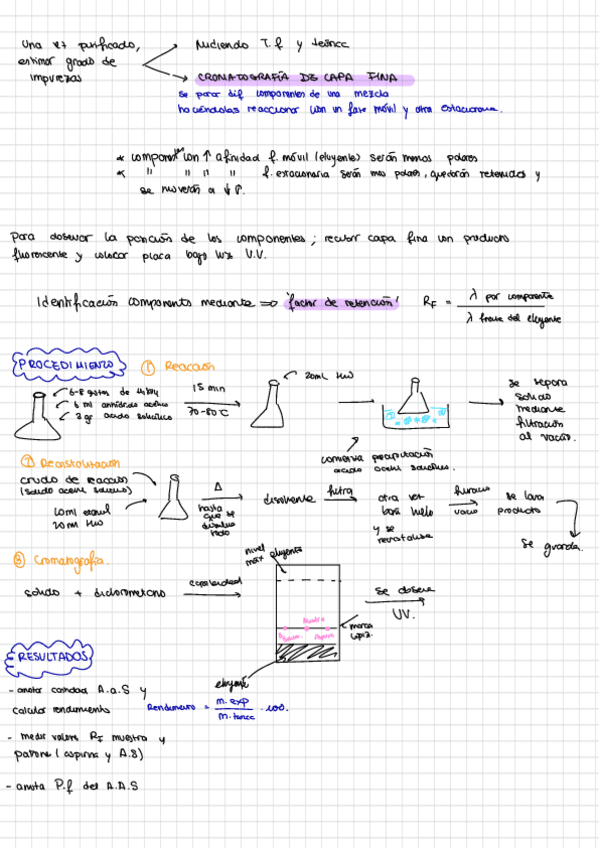 Una vez purificado,
estimar grado de
impurezas
Midiendo T.f y teórica
CROMATOGRAFÍA DE CAPA FINA
se parar dif componentes de una mezcla
haciéndolas reaccionar con un fase móvil y otra estacionaria.
* componentes con ↑ afinidad f. móvil (eluyente) serán menos polares
* " " " " f. estacionaria serán más polares, quedarán retenidos y
se moverán a ↓ P.
Para observar la posición de los componentes; recubrir capa fina con producto
fluorescente y colocar placa bajo luz U.V.
Identificación componente mediante ⇒ 'factor de retención' RF = λ por componente
λ frente del eluyente
PROCEDIMIENTO
① Reacción
6-8 gotas de H3PO4
6 ml anhídrido acético
3 gr ácido salicílico
15 min
70-80°C
20mL H2O
comienza precipitación
ácido acetil salicílico.
se separa
sólido
mediante
filtración
al vacío.
② Recristalización
crudo de reacción
(sólido acetil salicílico)
10ml etanol
20ml H2O
Δ
hasta
que se
disuelva
todo
disolvente
filtra
otra vez
baño hielo
y se
recristaliza
filtrado
vacío
se lava
producto
Se guarda.
③ Cromatografía.
sólido + diclorometano
capilaridad
nivel
máx eluyente
Muestra
Aspirina
marca
lápiz.
eluyente
se observa
UV.
RESULTADOS
- anotar cantidad A.a.S y
calcular rendimiento
Rendimiento = m.exp / m.teórica · 100.
- medir valores RF muestra y
patrones (aspirina y A.S)
- anota P.f del A.A.S